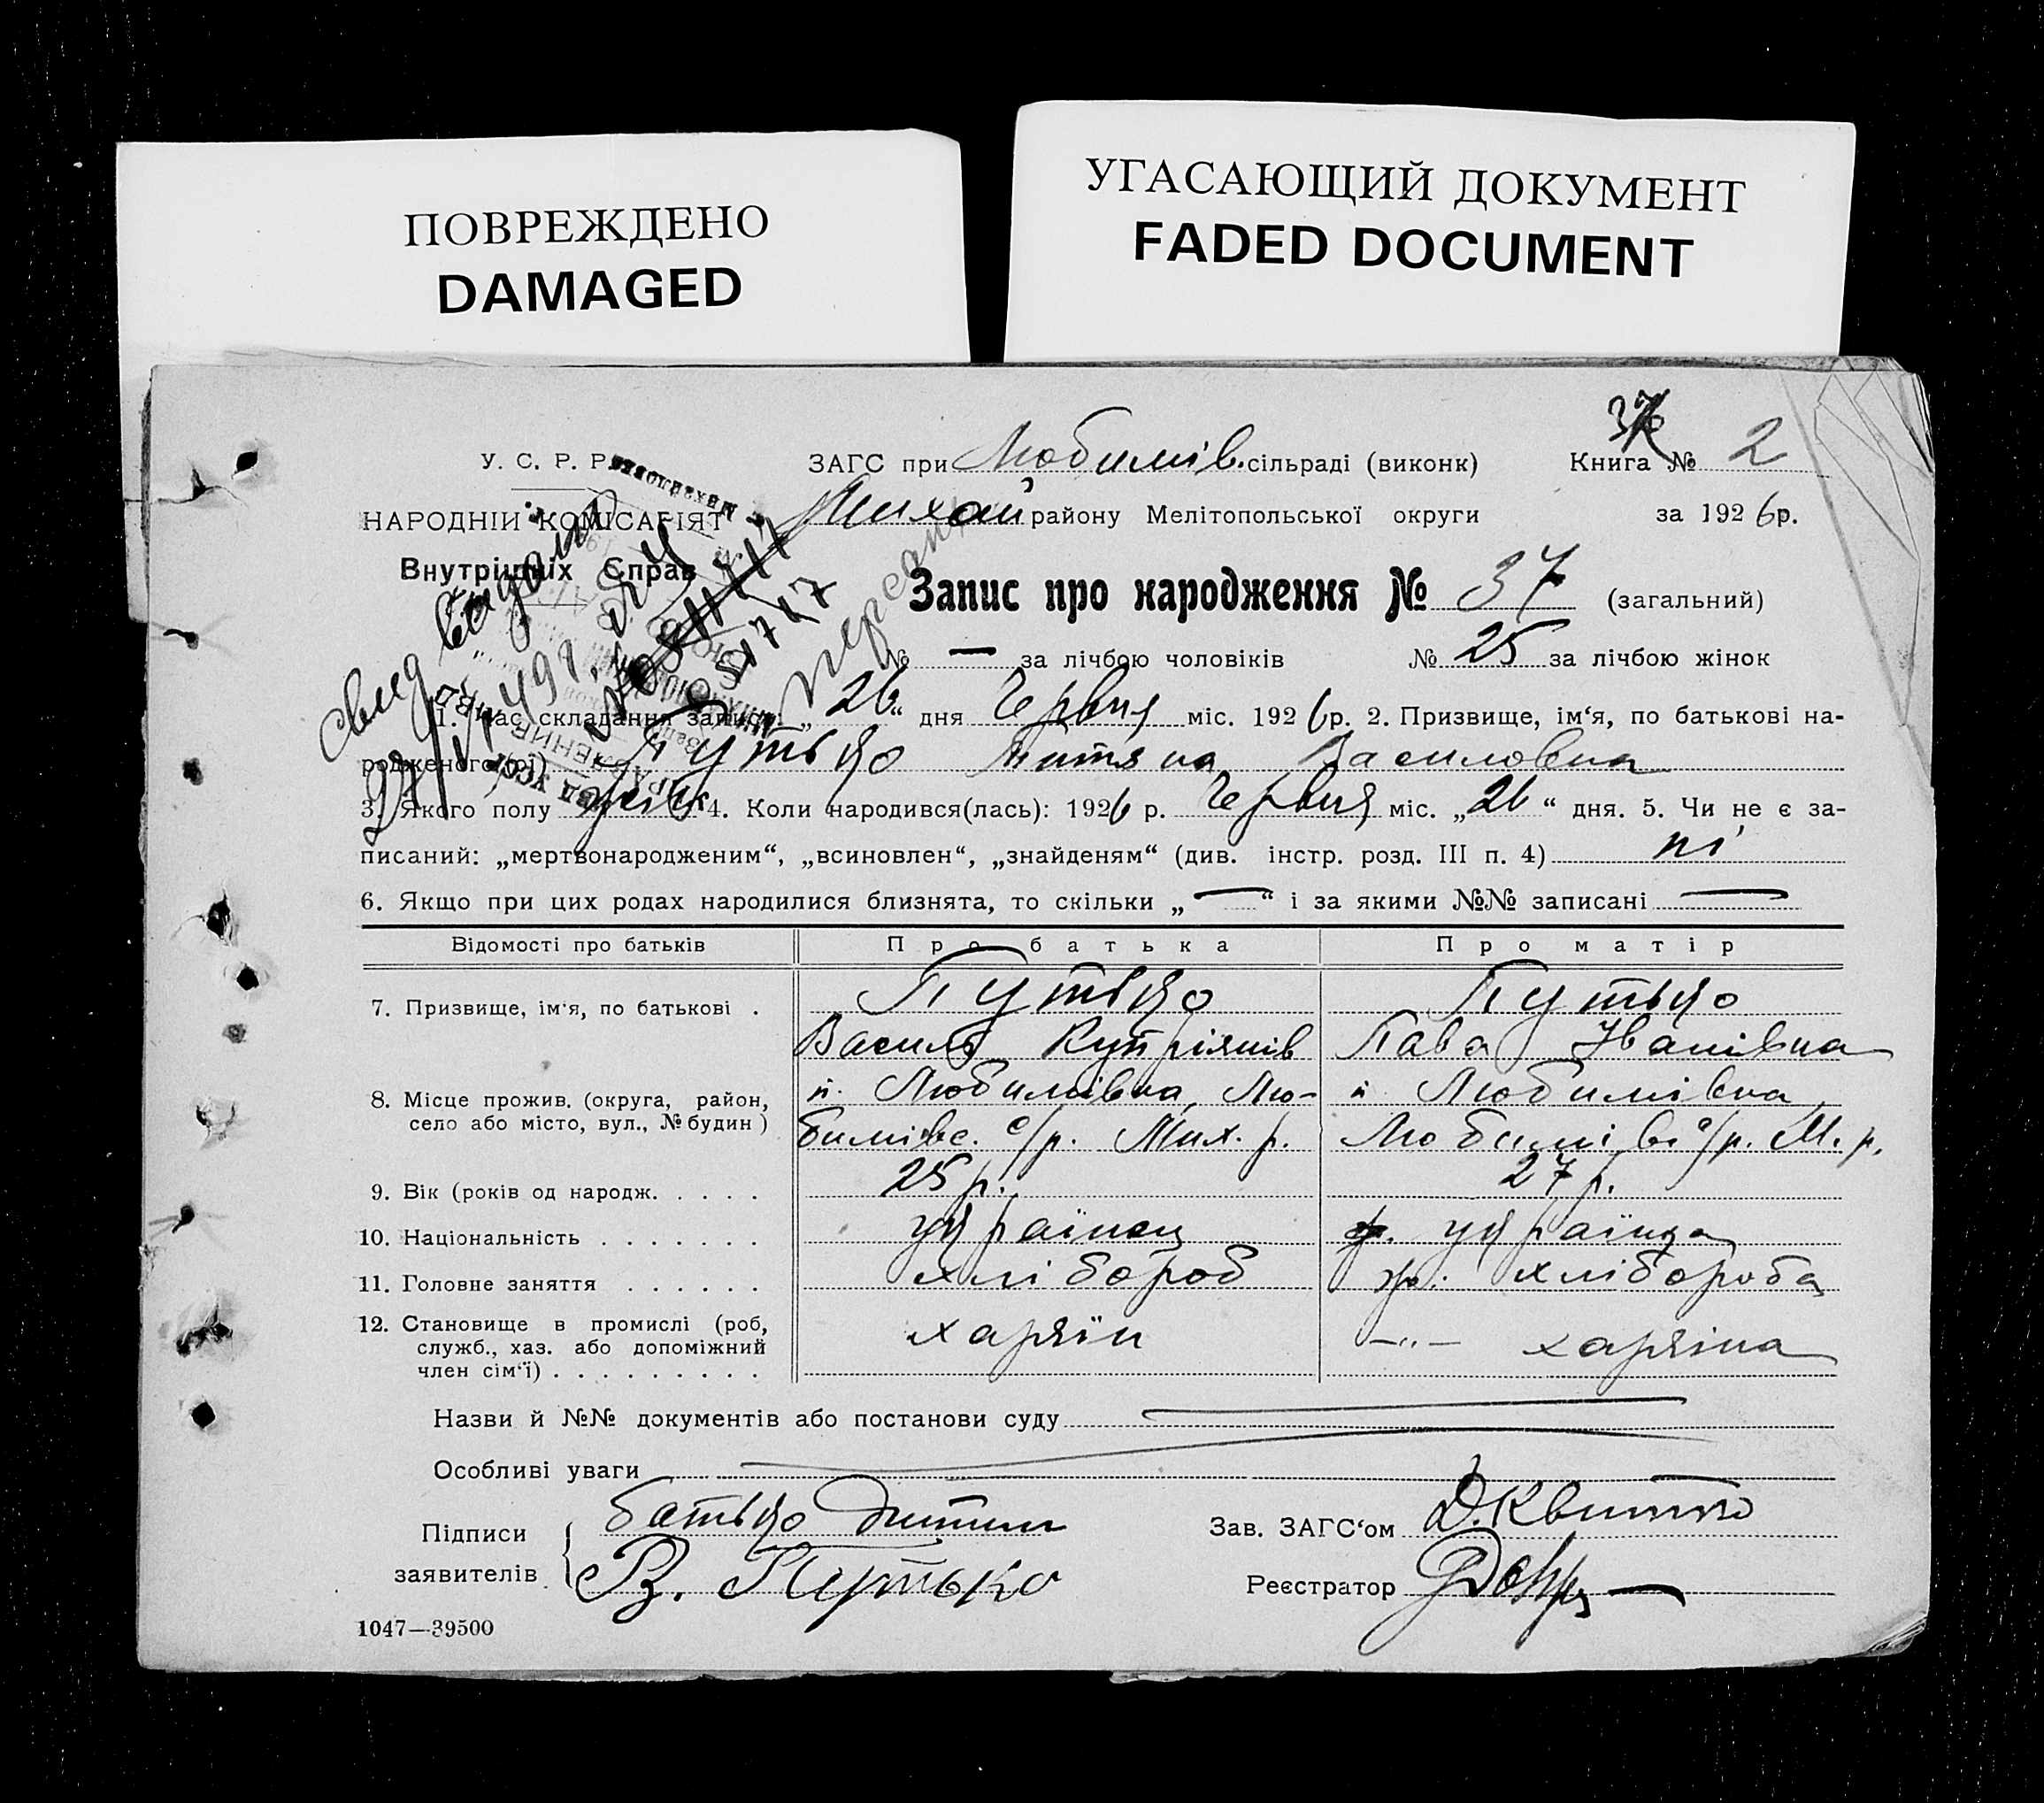 ПОВРЕЖДЕНО
DAMAGED
УГАСАЮЩИЙ ДОКУМЕНТ
FADED DOCUMENT
37
У. С. Р. Р. ЗАГС при Любимів. сільраді (виконк) Книга № 2
НАРОДНІЙ КОМІСАРІЯТ Михай району Мелітопольської округи за 1926 р.
Внутрішніх Справ
Запис про народження № 37 (загальний)
№ — за лічбою чоловіків № 25 за лічбою жінок
1. Час складання запису: „26“ дня Червня міс. 1926 р. 2. Призвище, ім‘я, по батькові на-
родженого(ої) Путько Василовна
3. Якого полу 4. Коли народився(лась): 1926 р. Червня міс. „26“ дня. 5. Чи не є за-
писаний: „мертвонародженим“, „всиновлен“, „знайденям“ (див. інстр. розд. III п. 4) ні
6. Якщо при цих родах народилися близнята, то скільки „—“ і за якими №№ записані —
Відомості про батьків Про батька Про матір
7. Призвище, ім‘я, по батькові . Путько Путько
Василь Купріянів Пава Іванівна
8. Місце прожив. (округа, район, п. Любимівка, Лю- п. Любимівка,
село або місто, вул., № будин) бимівс. с/р. Мих. р. Любимів с/р. М. р.
9. Вік (років од народж. . . . . 25 р. 27 р.
10. Національність . . . . . . . українец українка
11. Головне заняття . . . . . . хлібороб хлібороба
12. Становище в промислі (роб, хазяїн —„— хазяїна
служб., хаз. або допоміжний
член сім‘ї) . . . . . . . . .
Назви й №№ документів або постанови суду
Особливі уваги
Підписи батько дитини Зав. ЗАГС‘ом Д. Квитко
заявителів В. Путько Реєстратор
1047—39500